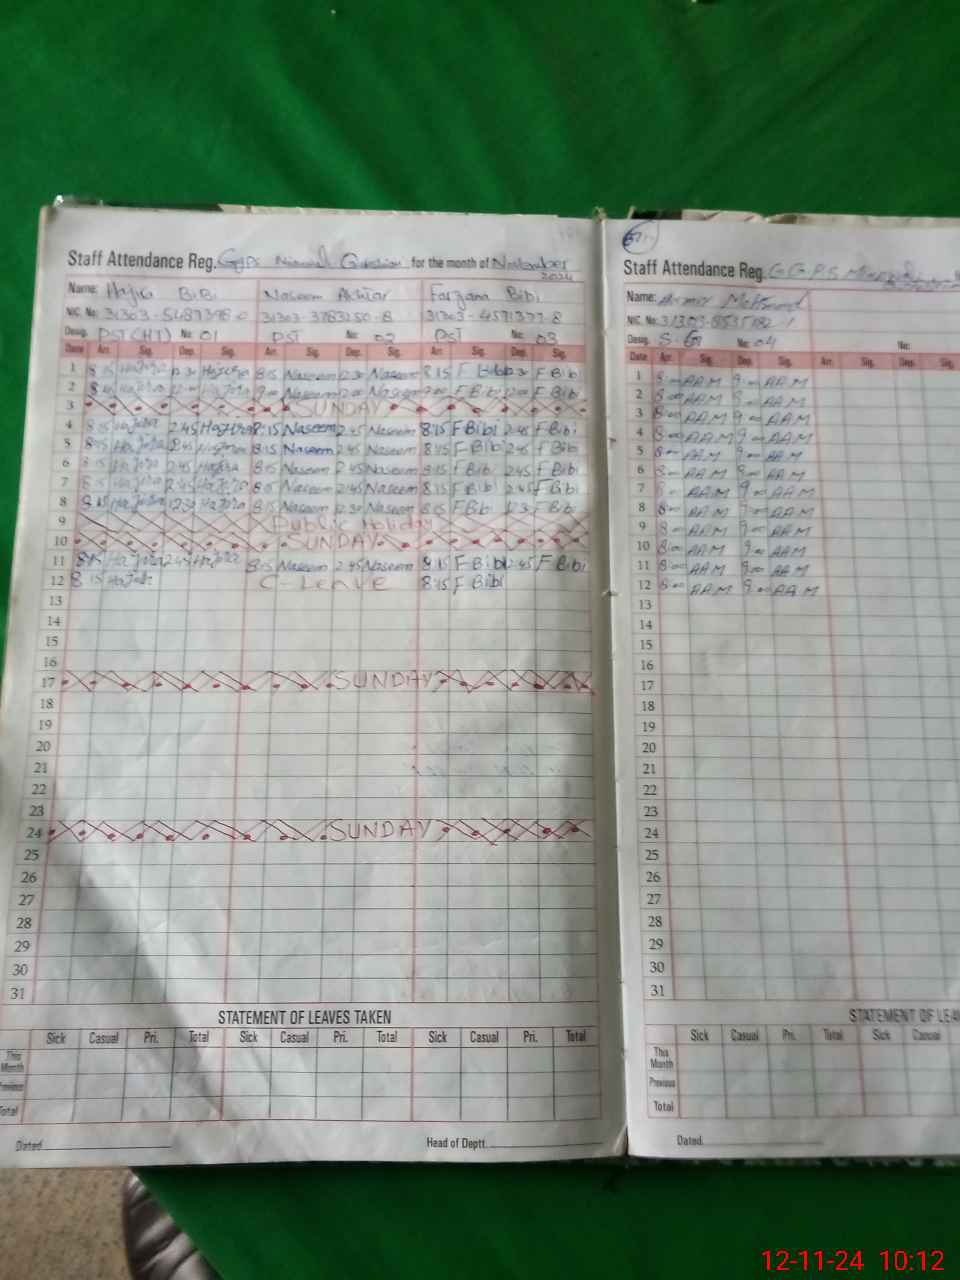 Staff Attendance Reg. for the month of November
2024
Name: Hajra BiBi Naseem Akhtar Farzana Bibi
NIC. No: 31303-5487398-0 31303-3783150-8 31303-4591377-8
Desig. PST(HT) No: 01 PST No: 02 PST No: 03
Date Arr. Sig. Dep. Sig. Arr. Sig. Dep. Sig. Arr. Sig. Dep. Sig.
1 8:15 Hajra 12:30 Hajra 8:15 Naseem 12:30 Naseem 8:15 F Bibi 12:30 F Bibi
2 Hajra 12:00 Hajra 9:00 Naseem 12:00 Naseem 9:00 F Bibi 12:00 F Bibi
3 SUNDAY
4 8:15 Hajra 2:45 Hajra 8:15 Naseem 2:45 Naseem 8:15 F Bibi 2:45 F Bibi
5 8:15 Hajra 2:45 Hajra 8:15 Naseem 2:45 Naseem 8:15 F Bibi 2:45 F Bibi
6 8:15 Hajra 2:45 Hajra 8:15 Naseem 2:45 Naseem 8:15 F Bibi 2:45 F Bibi
7 8:15 Hajra 2:45 Hajra 8:15 Naseem 2:45 Naseem 8:15 F Bibi 2:45 F Bibi
8 8:15 Hajra 12:30 Hajra 8:15 Naseem 12:30 Naseem 8:15 F Bibi 12:30 F Bibi
9 Public Holiday
10 SUNDAY
11 8:15 Hajra 2:45 Hajra 8:15 Naseem 2:45 Naseem 8:15 F Bibi 2:45 F Bibi
12 8:15 Hajra C-Leave 8:15 F Bibi
13
14
15
16
17 SUNDAY
18
19
20
21
22
23
24 SUNDAY
25
26
27
28
29
30
31
STATEMENT OF LEAVES TAKEN
Sick Casual Pri. Total Sick Casual Pri. Total Sick Casual Pri. Total
This Month
Previous
Total
Dated Head of Deptt.
Staff Attendance Reg. G.G.P.S
Name:
NIC. No:
Desig. No: 04 No:
Date Arr. Sig. Dep. Sig. Arr. Sig. Dep. Sig.
1 8:00 AAM 9:00 AAM
2 8:00 AAM 9:00 AAM
3 8:00 AAM 9:00 AAM
4 8:00 AAM 9:00 AAM
5 8:00 AAM 9:00 AAM
6 8:00 AAM 9:00 AAM
7 8:00 AAM 9:00 AAM
8 8:00 AAM 9:00 AAM
9 8:00 AAM 9:00 AAM
10 8:00 AAM 9:00 AAM
11 8:00 AAM 9:00 AAM
12 8:00 AAM 9:00 AAM
13
14
15
16
17
18
19
20
21
22
23
24
25
26
27
28
29
30
31
STATEMENT OF LEA
Sick Casual Pri. Total Sick Casual
This Month
Previous
Total
Dated
12-11-24 10:12